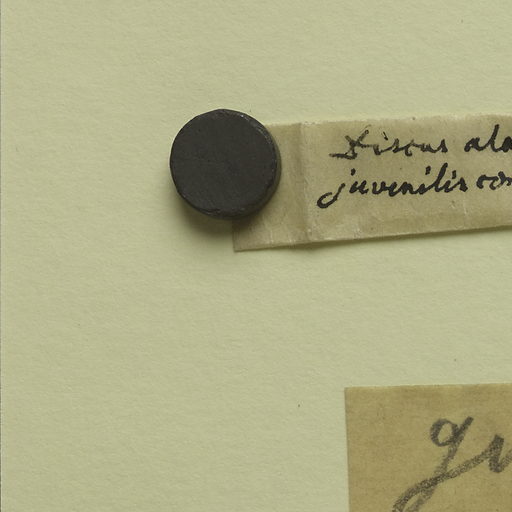 Discus ala
juvenilis con
gu